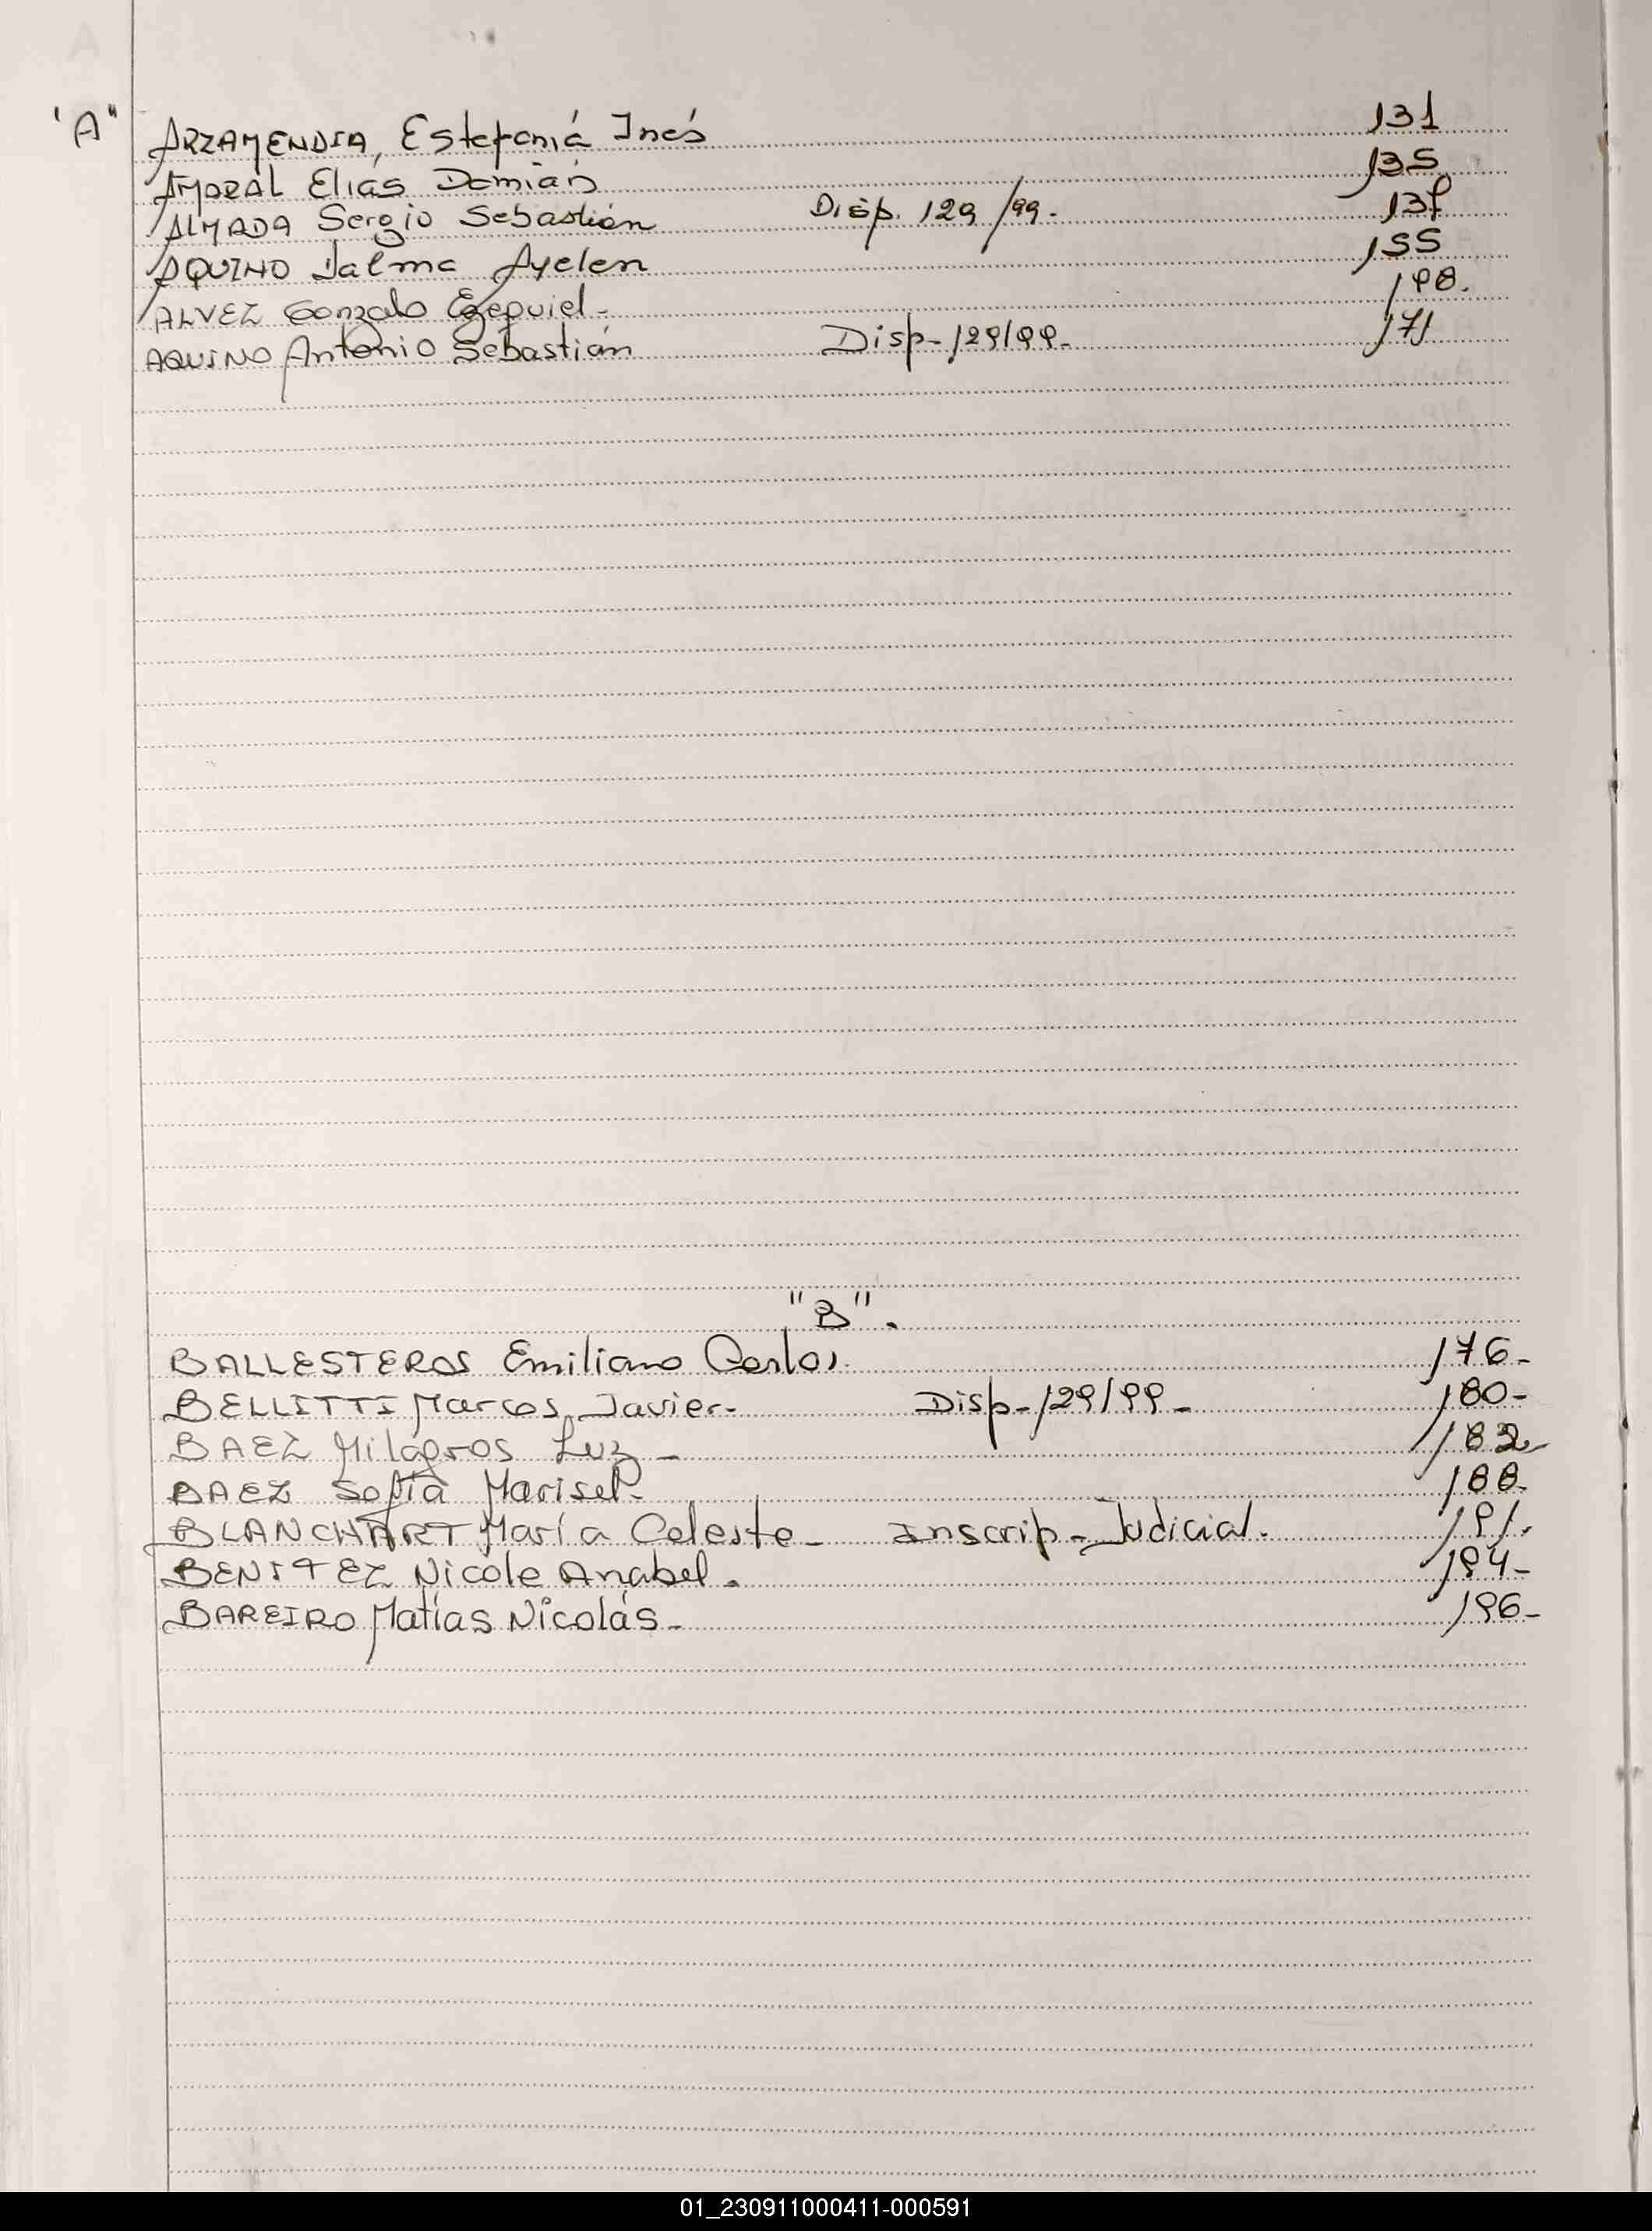 "A" ARZAMENDIA, Estefaniá Inés 131
AMARAL Elías Damián 135
ALMADA Sergio Sebastián Disp. 129/99.
AQUINO Dalma Ayelen 155
ALVEZ Gonzalo Ezequiel.
AQUINO Antonio Sebastián Disp-129/99- 171
"B".
BALLESTEROS Emiliano Carlos. 176-
BELLITTI Marcos Javier- Disp-129/99- 180-
BAEZ Milagros Luz- 182-
BAEZ Sofía Marisel- 188-
BLANCHART María Celeste- Inscrip-Judicial. 191.
BENITEZ Nicole Anabel. 194-
BAREIRO Matías Nicolás- 196-
01_230911000411-000591